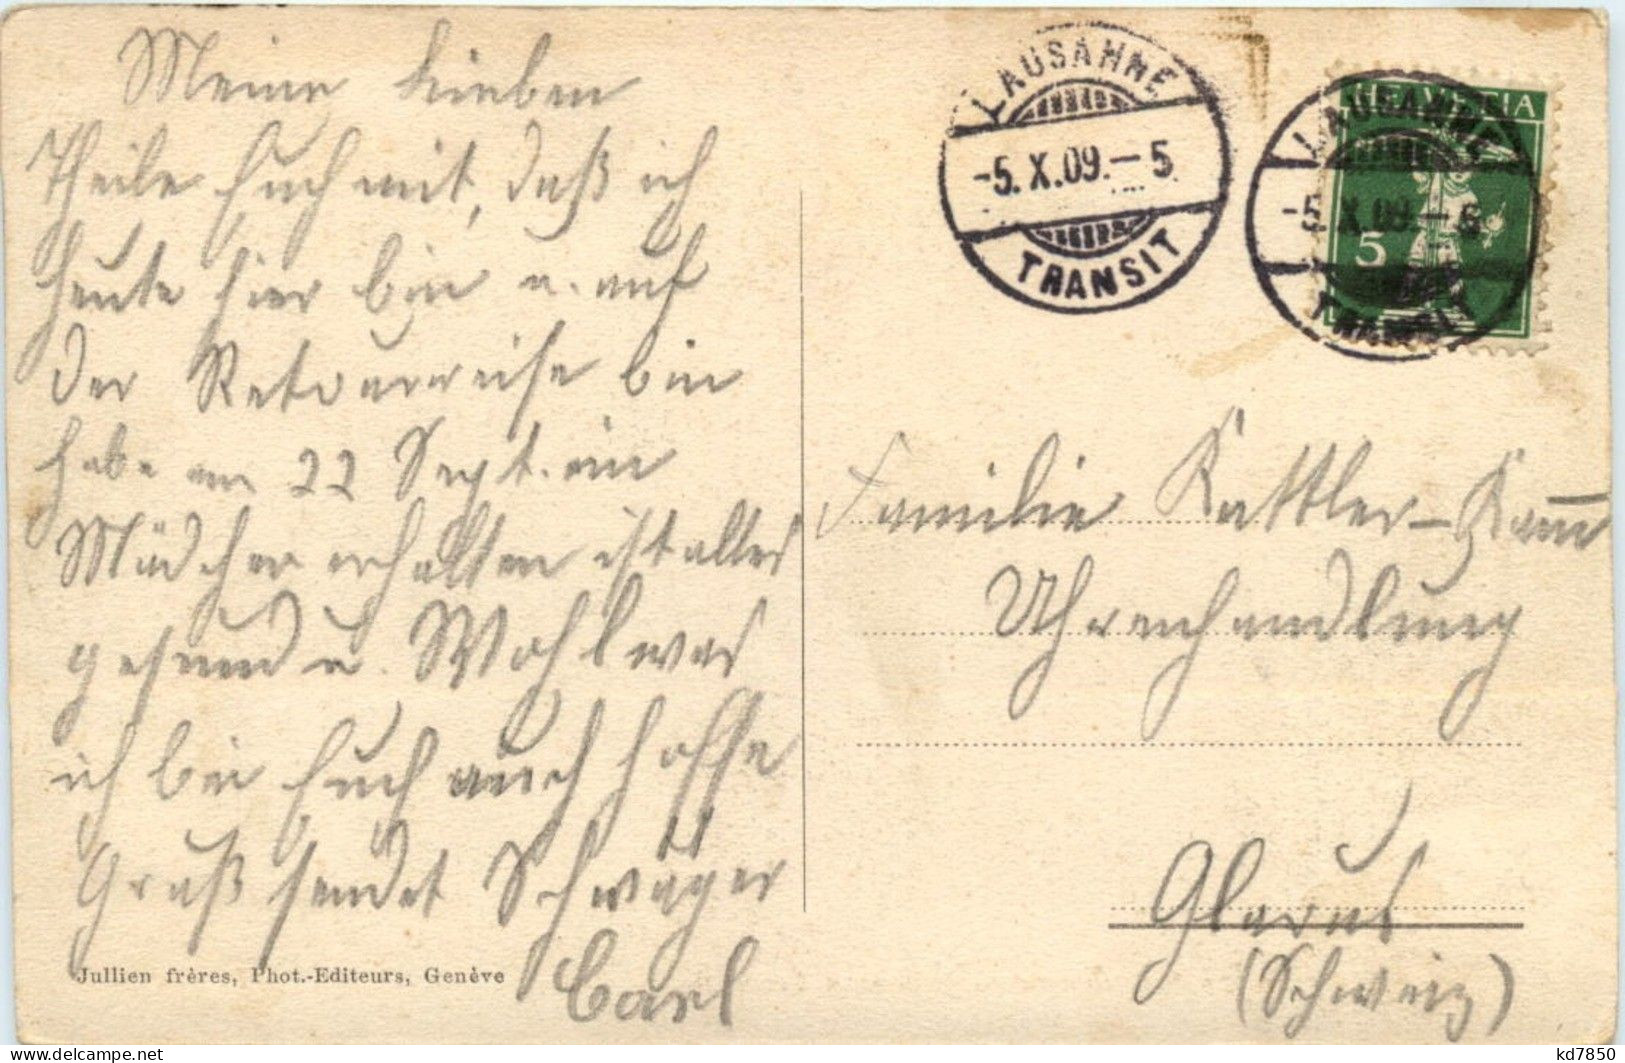 Meine Lieben
Theile Euch mit, daß ich
heute hier bin u. auf
der Retourreise bin
habe am 22 Sept. ein
Mädchen erhalten ist alles
gesund u. Wohl was
ich bei Euch auch hoffe
Gruß sendet Schwager
Carl
Jullien frères, Phot.-Editeurs, Genève
LAUSANNE
-5.X.09.-5
TRANSIT
HELVETIA
5
LAUSANNE
-5.X.09.-5
TRANSIT
Familie Kattler-Kamm
Uhrenhandlung
Glarus
(Schweiz)
kd7850